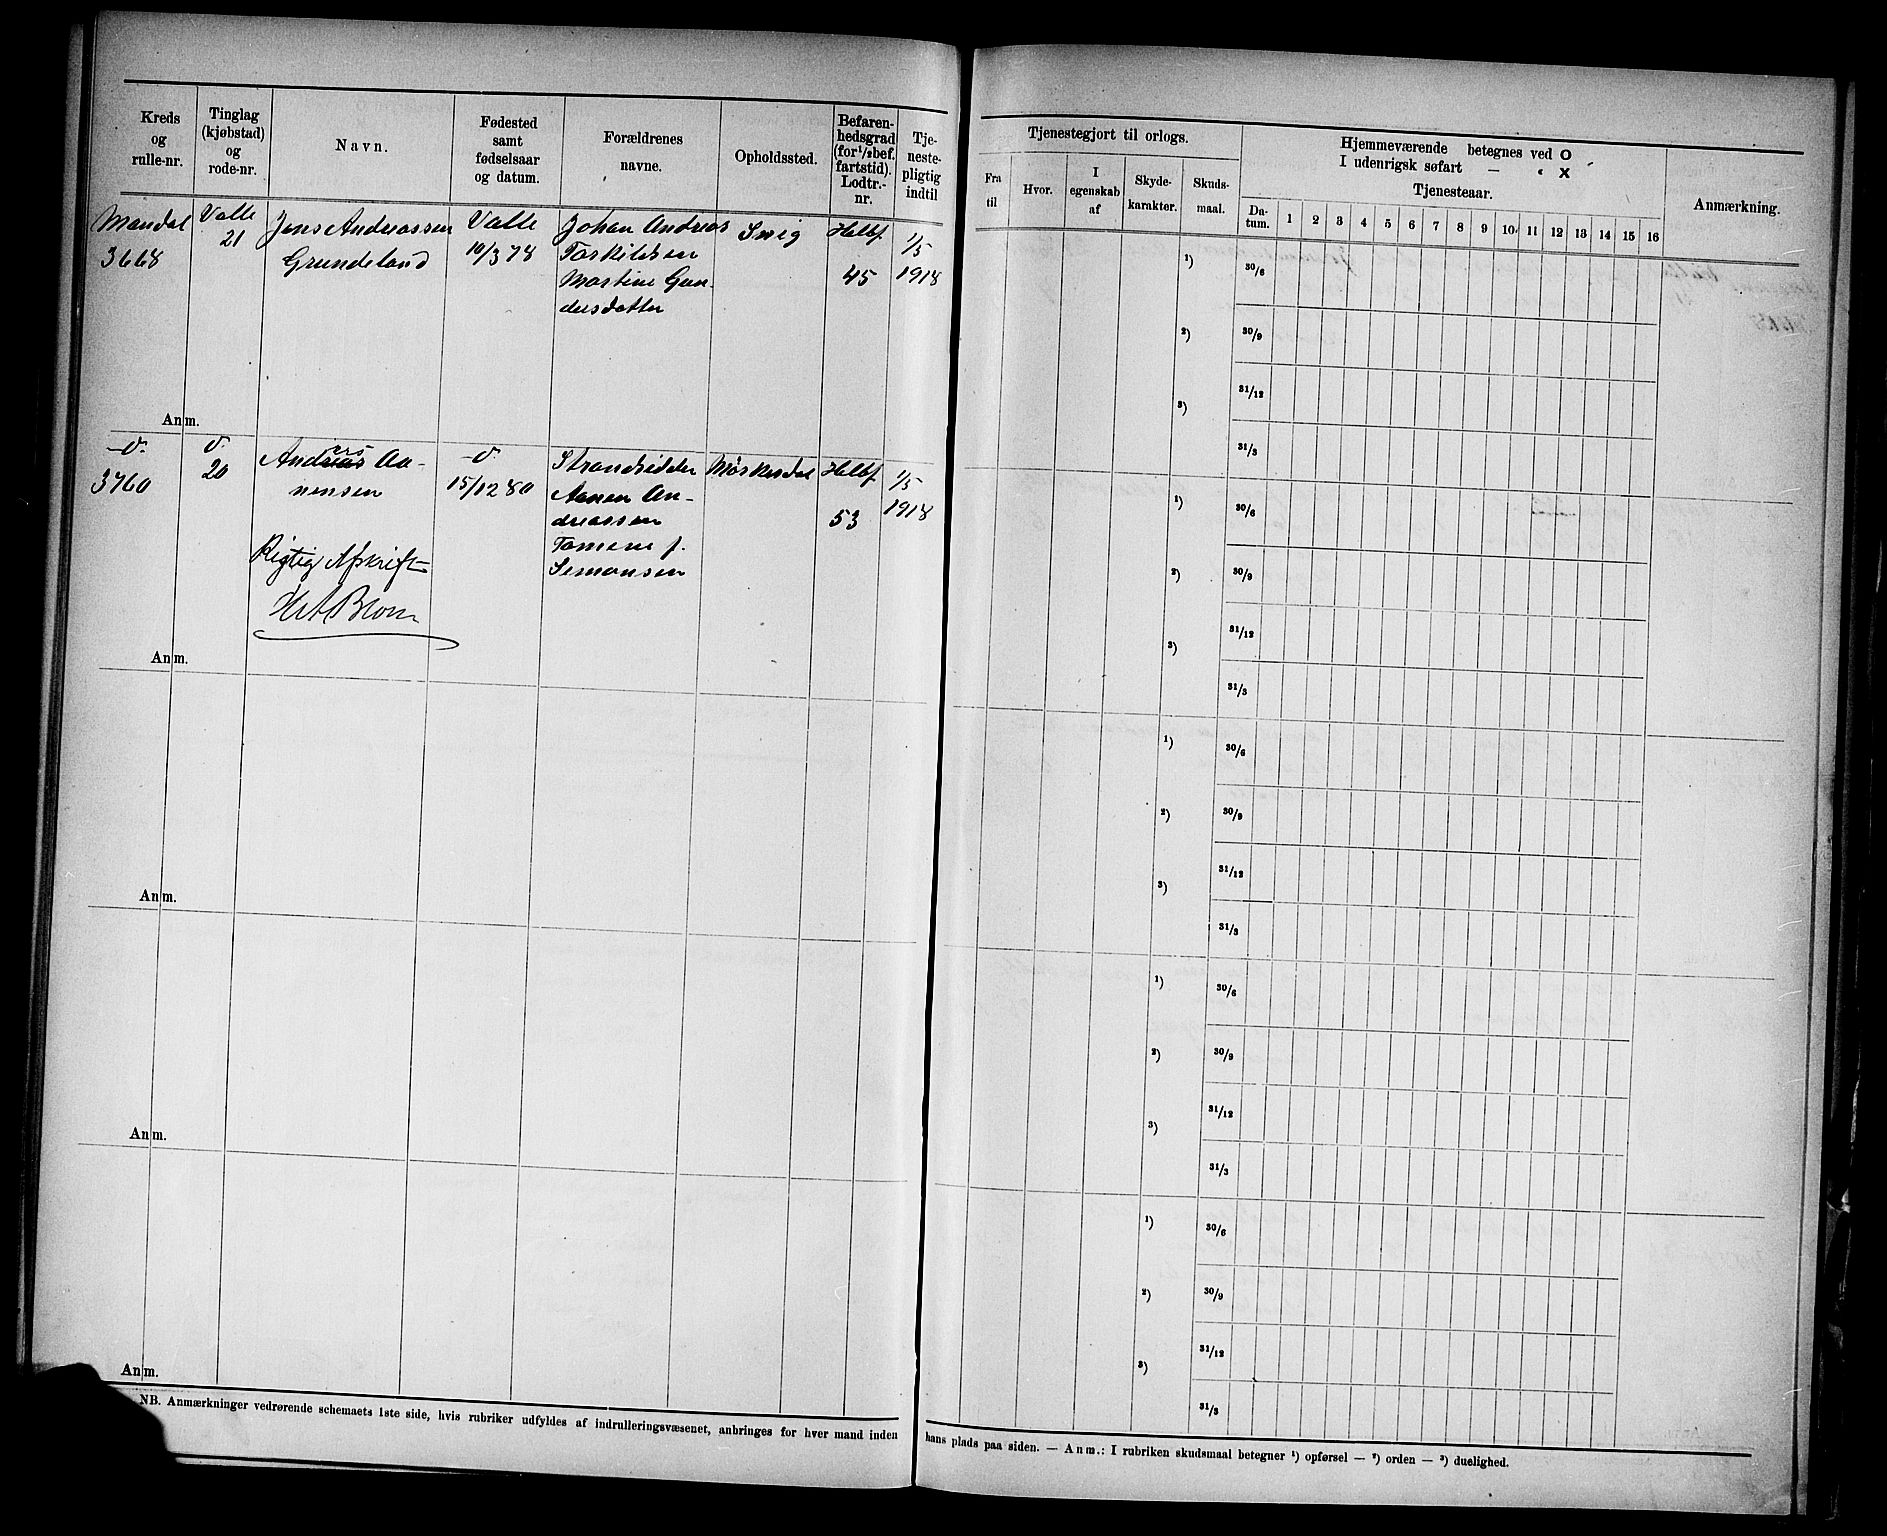 Kreds
og
rulle-nr.
Tinglag
(kjøbstad)
og
rode-nr.
Navn.
Fødested
samt
fødselsaar
og datum.
Forældrenes
navne.
Opholdssted.
Befaren-
hedsgrad
(for ½ bef.
fartstid).
Lodtr.-
nr.
Tje-
neste-
pligtig
indtil
Mandal
3668
Valle
21
Jens Andreassen
Grundeland
Valle
19/3 78
Johan Andreas
Torkildsen
Martine Gun-
dersdatter
Snig
Helbf.
45
1/5
1918
Anm.
-v-
3760
v.
20
Anders Aa-
nensen
-v-
15/12 80
Strandsidder
Aanen An-
dreassen
Tomine f.
Simonsen
Møskedal
Helbf
53
1/5
1918
Rigtig Afskrift
Blom
Anm.
Anm.
Anm.
Anm.
NB. Anmærkninger vedrørende schemaets 1ste side, hvis rubriker udfyldes af indrulleringsvæsenet, anbringes for hver mand inden
Tjenestegjort til orlogs.
Fra
til
Hvor.
I
egenskab
af
Skyde-
karakter.
Skuds-
maal.
Hjemmeværende betegnes ved O
I udenrigsk søfart — „ X
Tjenesteaar.
Da-
tum.
1 2 3 4 5 6 7 8 9 10 11 12 13 14 15 16
Anmærkning.
1)
30/6
2)
30/9
3)
31/12
31/3
1)
30/6
2)
30/9
3)
31/12
31/3
1)
30/6
2)
30/9
3)
31/12
31/3
1)
30/6
2)
30/9
3)
31/12
31/3
1)
30/6
2)
30/9
3)
31/12
31/3
hans plads paa siden. — Anm.: I rubriken skudsmaal betegner 1) opførsel — 2) orden — 3) duelighed.